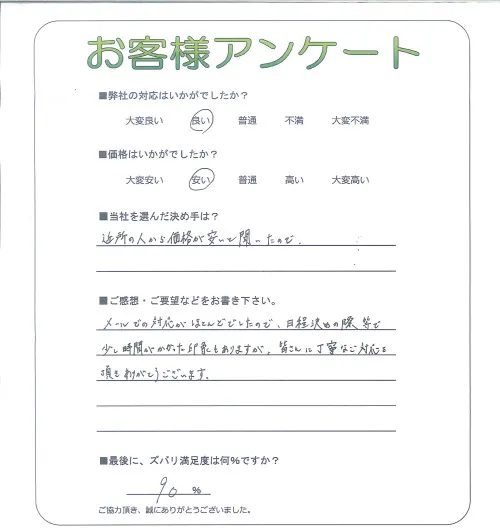 お客様アンケート
■弊社の対応はいかがでしたか？
大変良い 良い 普通 不満 大変不満
■価格はいかがでしたか？
大変安い 安い 普通 高い 大変高い
■当社を選んだ決め手は？
近所の人から価格が安いと聞いたので、
■ご感想・ご要望などをお書き下さい。
メールでの対応がほとんどでしたので、日程決めの際等で
少し時間がかかった印象もありますが、皆さんに丁寧なご対応を
頂きありがとうございます。
■最後に、ズバリ満足度は何%ですか？
90 %
ご協力頂き、誠にありがとうございました。